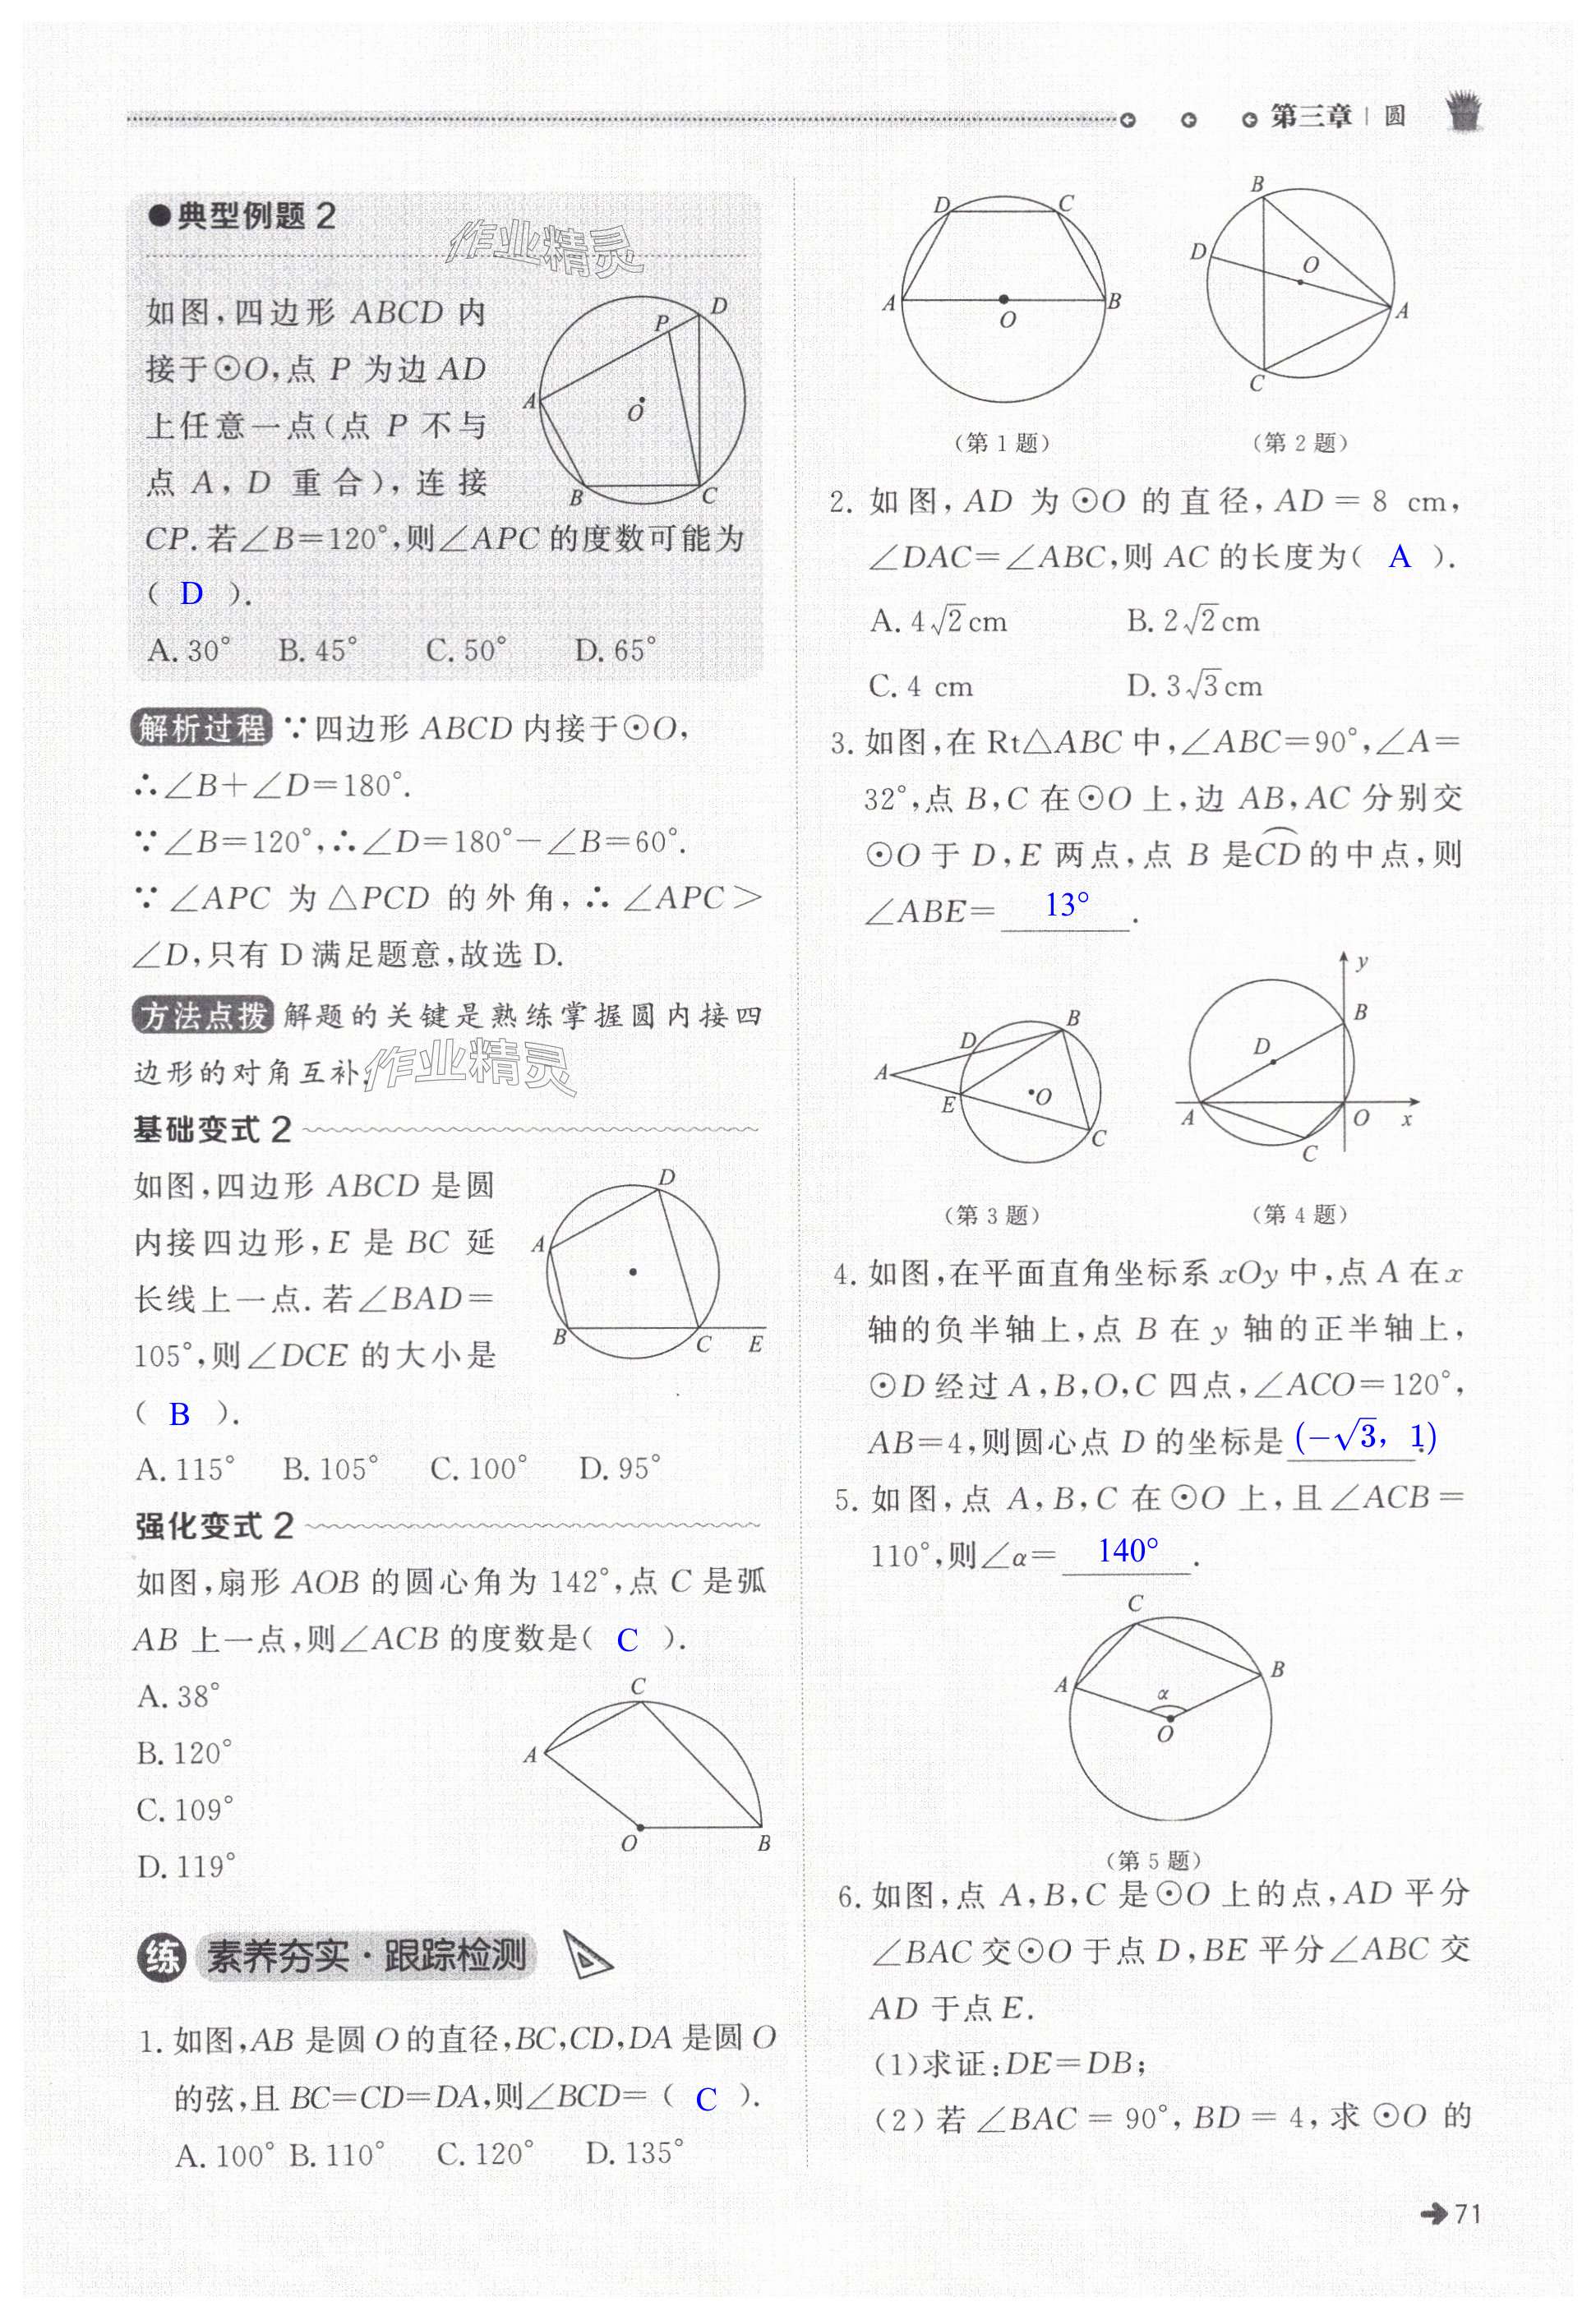 第三章 | 圆
●典型例题 2
作业精灵
如图,四边形 ABCD 内
接于⊙O,点 P 为边 AD
上任意一点(点 P 不与
点 A, D 重合),连接
CP.若∠B=120°,则∠APC的度数可能为
( D ).
A.30° B.45° C.50° D.65°
A B C D P O
解析过程 ∵四边形 ABCD 内接于⊙O,
∴∠B+∠D=180°.
∵∠B=120°,∴∠D=180°-∠B=60°.
∵ ∠APC 为△PCD 的外角,∴ ∠APC>
∠D,只有 D 满足题意,故选 D.
方法点拨 解题的关键是熟练掌握圆内接四
边形的对角互补.
作业精灵
基础变式 2
如图,四边形 ABCD 是圆
内接四边形,E 是 BC 延
长线上一点.若∠BAD=
105°,则∠DCE 的大小是
( B ).
A.115° B.105° C.100° D.95°
A B C D E
强化变式 2
如图,扇形 AOB 的圆心角为 142°,点 C 是弧
AB 上一点,则∠ACB 的度数是( C ).
A.38°
B.120°
C.109°
D.119°
A C O B
练 素养夯实·跟踪检测
1. 如图,AB 是圆 O 的直径,BC,CD,DA 是圆 O
的弦,且 BC=CD=DA,则∠BCD=( C ).
A.100° B.110° C.120° D.135°
D C A O B
B D O A C
(第 1 题) (第 2 题)
2. 如图,AD 为⊙O 的直径,AD=8 cm,
∠DAC=∠ABC,则 AC 的长度为( A ).
A. 4√2cm B. 2√2cm
C. 4 cm D. 3√3cm
3. 如图,在 Rt△ABC 中,∠ABC=90°,∠A=
32°,点 B,C 在⊙O 上,边 AB,AC 分别交
⊙O 于 D,E 两点,点 B 是C͡D的中点,则
∠ABE= 13° .
A D B E O C
y B D A O x C
(第 3 题) (第 4 题)
4. 如图,在平面直角坐标系 xOy 中,点 A 在 x
轴的负半轴上,点 B 在 y 轴的正半轴上,
⊙D 经过 A,B,O,C 四点,∠ACO=120°,
AB=4,则圆心点 D 的坐标是 (-√3, 1) .
5. 如图,点 A,B,C 在⊙O 上,且∠ACB=
110°,则∠α= 140° .
C A B α O
(第 5 题)
6. 如图,点 A,B,C 是⊙O 上的点,AD 平分
∠BAC 交⊙O 于点 D,BE 平分∠ABC 交
AD 于点 E.
(1)求证:DE=DB;
(2)若∠BAC=90°,BD=4,求⊙O 的
71